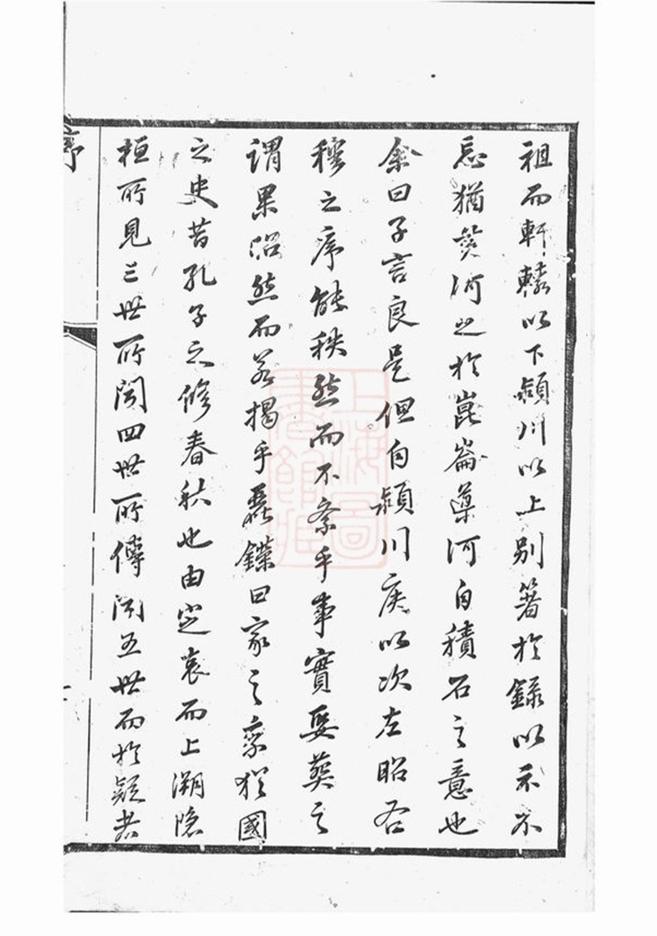 祖而軒轅以下潁川以上別著於錄以示不
忘猶黃河之於崑崙導河自積石之意也
余曰子言良是但自潁川侯以次左昭右
穆之序能秩然而不紊乎事實娶葬之
謂果沼然而若揭乎聶鑅曰家之乘猶國
之史昔孔子之修春秋也由定哀而上溯隱
桓所見三世所聞四世所傳聞五世而於疑者
序
上海圖書館藏